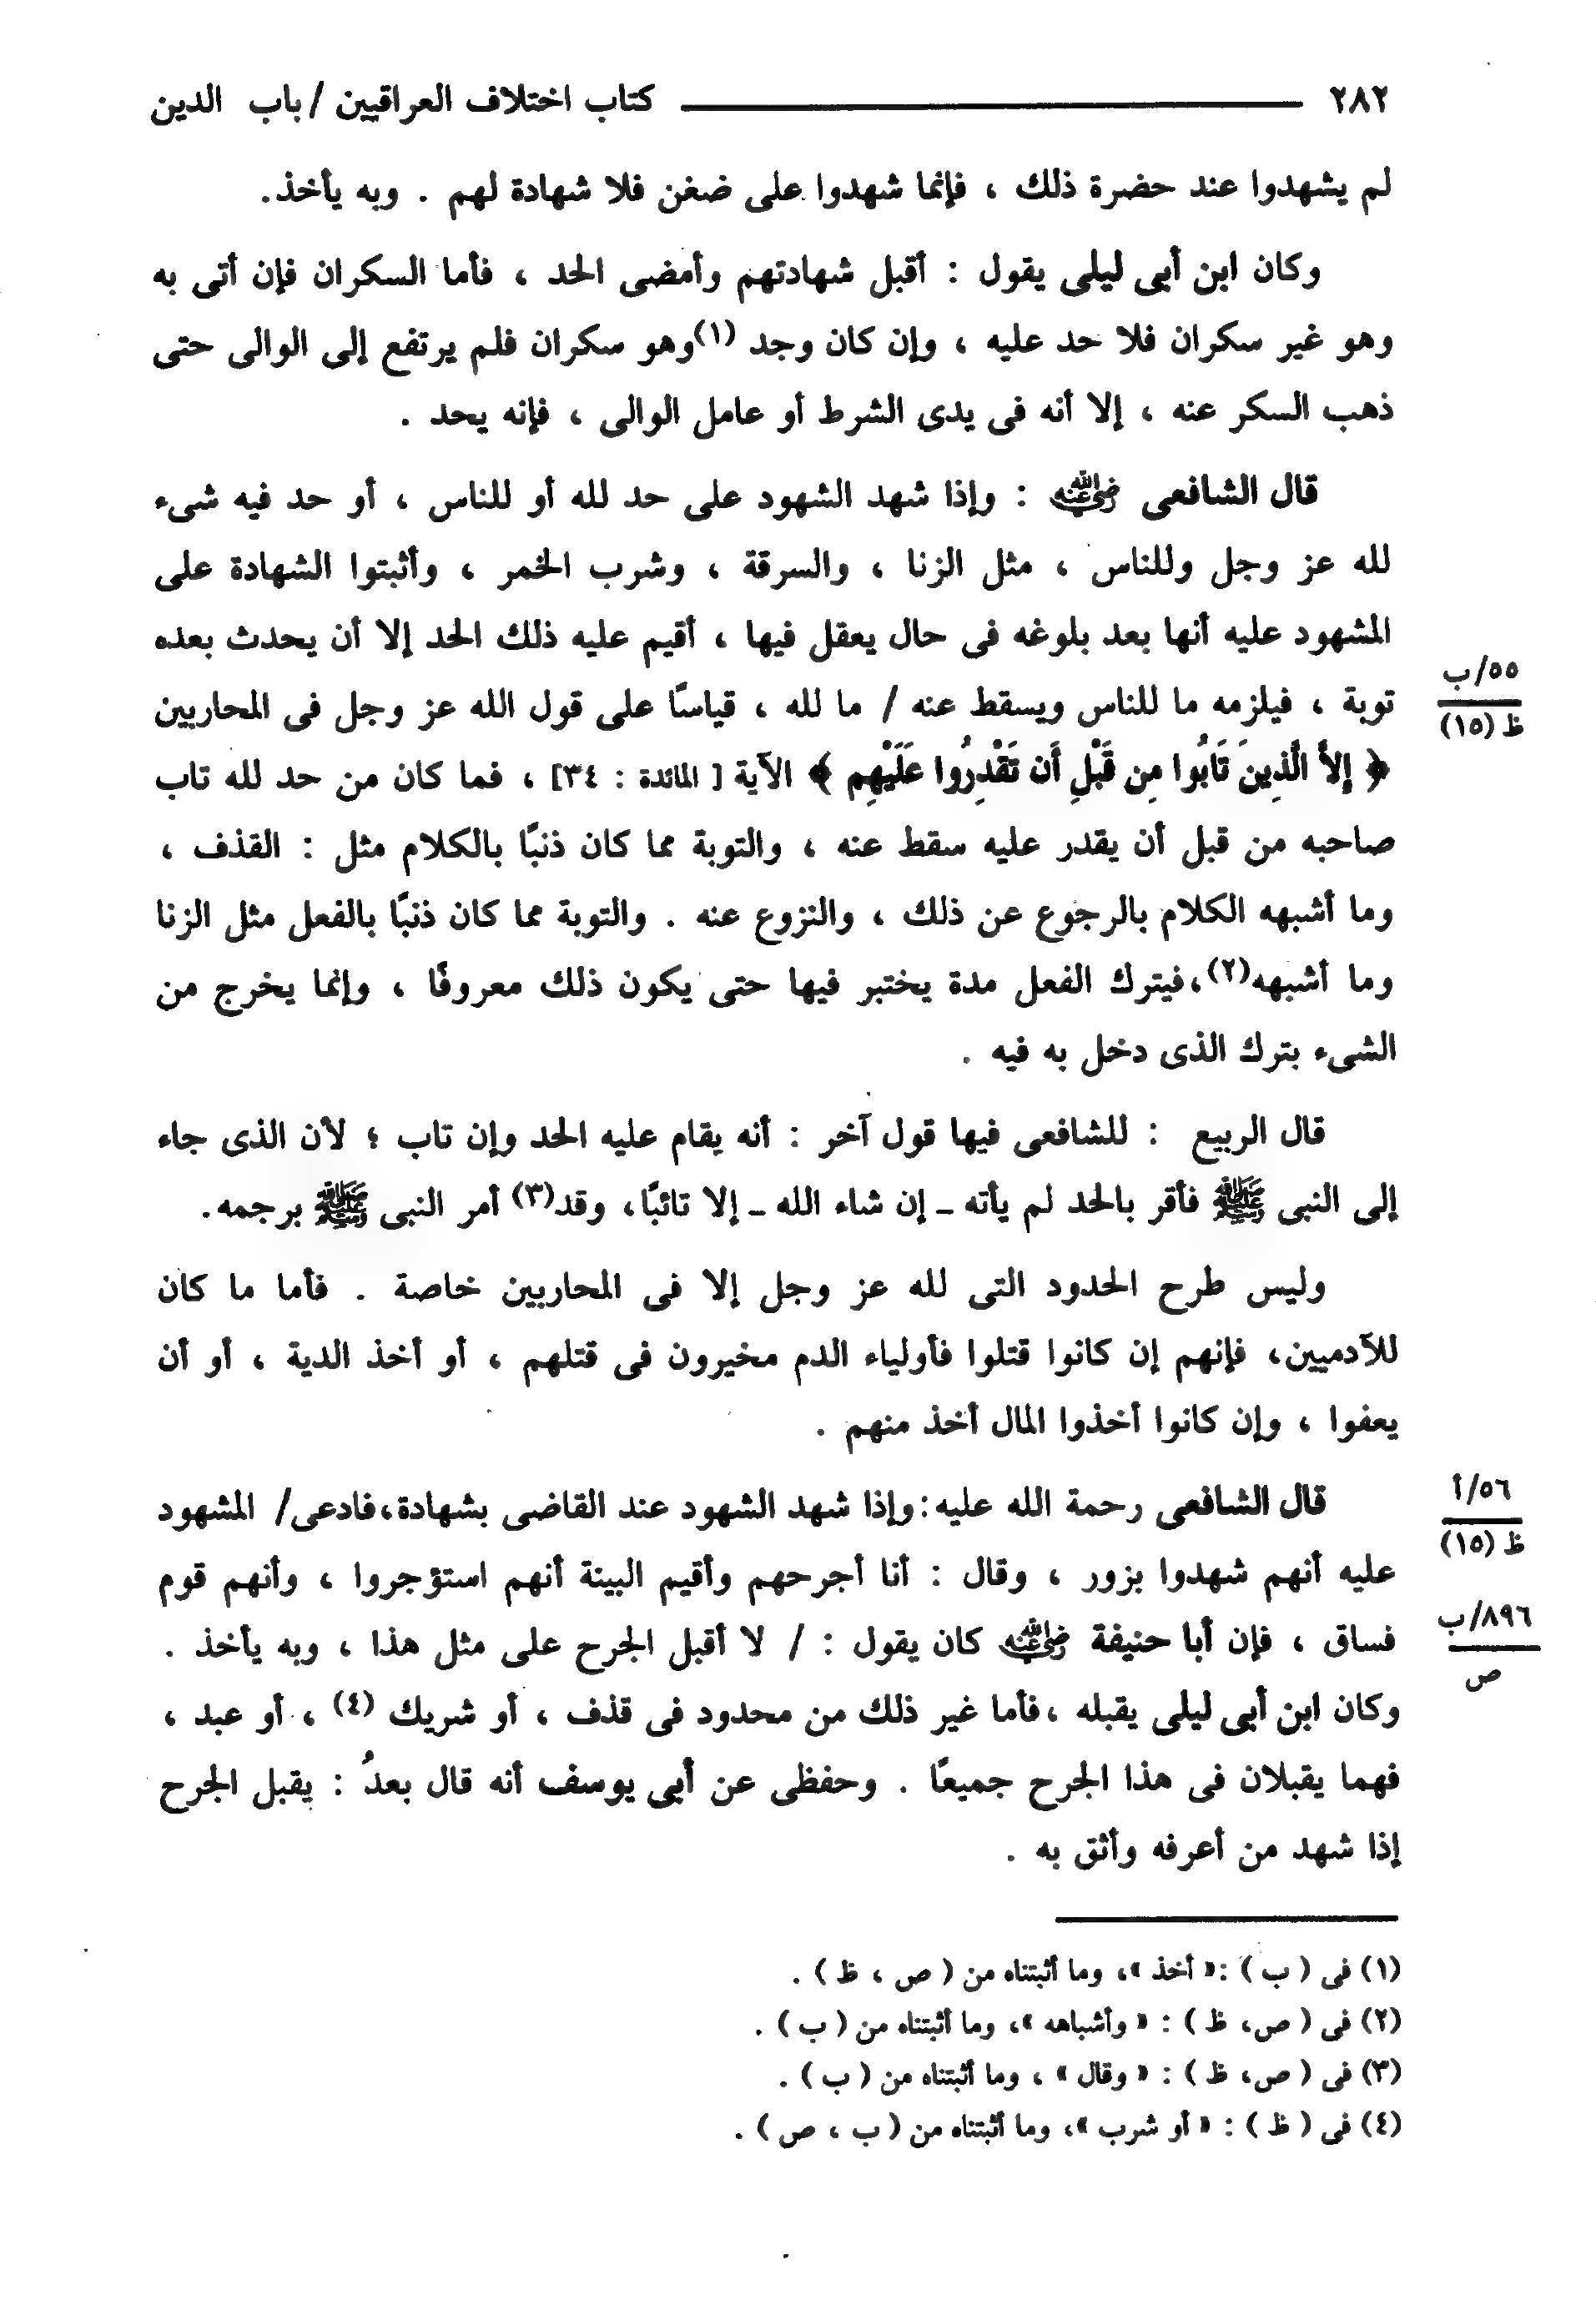 ٢٨٢ كتاب اختلاف العراقيين / باب الدين
لم يشهدوا عند حضرة ذلك ، فإنما شهدوا على ضغن فلا شهادة لهم . وبه يأخذ.
وكان ابن أبى ليلى يقول : أقبل شهادتهم وأمضى الحد ، فأما السكران فإن أتى به
وهو غير سكران فلا حد عليه ، وإن كان وجد (١) وهو سكران فلم يرتفع إلى الوالى حتى
ذهب السكر عنه ، إلا أنه فى يدى الشرط أو عامل الوالى ، فإنه يحد .
قال الشافعى رضي الله عنه : وإذا شهد الشهود على حد لله أو للناس ، أو حد فيه شىء
لله عز وجل وللناس ، مثل الزنا ، والسرقة ، وشرب الخمر ، وأثبتوا الشهادة على
المشهود عليه أنها بعد بلوغه فى حال يعقل فيها ، أقيم عليه ذلك الحد إلا أن يحدث بعده
توبة ، فيلزمه ما للناس ويسقط عنه / ما لله ، قياسًا على قول الله عز وجل فى المحاربين
٥٥/ب
ظ (١٥)
﴿ إِلاَّ الَّذِينَ تَابُوا مِن قَبْلِ أَن تَقْدِرُوا عَلَيْهِم ﴾ الآية [ المائدة : ٣٤] ، فما كان من حد لله تاب
صاحبه من قبل أن يقدر عليه سقط عنه ، والتوبة مما كان ذنبًا بالكلام مثل : القذف ،
وما أشبهه الكلام بالرجوع عن ذلك ، والنزوع عنه . والتوبة مما كان ذنبًا بالفعل مثل الزنا
وما أشبهه(٢)،فيترك الفعل مدة يختبر فيها حتى يكون ذلك معروفًا ، وإنما يخرج من
الشىء بترك الذى دخل به فيه .
قال الربيع : للشافعى فيها قول آخر : أنه يقام عليه الحد وإن تاب ؛ لأن الذى جاء
إلى النبى ﷺ فأقر بالحد لم يأته ـ إن شاء الله ـ إلا تائبًا، وقد(٣) أمر النبى ﷺ برجمه.
وليس طرح الحدود التى لله عز وجل إلا فى المحاربين خاصة . فأما ما كان
للآدميين، فإنهم إن كانوا قتلوا فأولياء الدم مخيرون فى قتلهم ، أو أخذ الدية ، أو أن
يعفوا ، وإن كانوا أخذوا المال أخذ منهم .
قال الشافعى رحمة الله عليه:وإذا شهد الشهود عند القاضى بشهادة،فادعى/ المشهود
٥٦/أ
ظ (١٥)
عليه أنهم شهدوا بزور ، وقال : أنا أجرحهم وأقيم البينة أنهم استؤجروا ، وأنهم قوم
فساق ، فإن أبا حنيفة رضي الله عنه كان يقول : / لا أقبل الجرح على مثل هذا ، وبه يأخذ .
٨٩٦/ب
ص
وكان ابن أبى ليلى يقبله ،فأما غير ذلك من محدود فى قذف ، أو شريك (٤) ، أو عبد ،
فهما يقبلان فى هذا الجرح جميعًا . وحفظى عن أبى يوسف أنه قال بعدُ : يقبل الجرح
إذا شهد من أعرفه وأثق به .
(١) فى ( ب ) :« أخذ »، وما أثبتناه من ( ص ، ظ ) .
(٢) فى ( ص، ظ ) : « وأشباهه »، وما أثبتناه من ( ب ) .
(٣) فى ( ص، ظ ) : « وقال » ، وما أثبتناه من ( ب ) .
(٤) فى ( ظ ) : « أو شرب »، وما أثبتناه من ( ب ، ص ) .